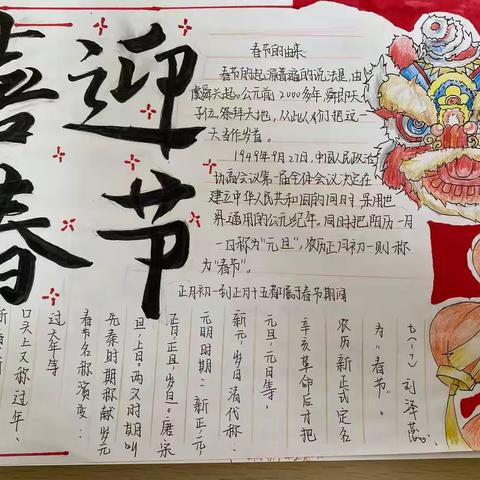 喜迎
春节
春节的由来
春节的起源普遍的说法是,由
虞舜兴起。公元前2000多年,舜即天
子位,祭拜天地,从此人们把这一
天当作岁首。
1949年9月27日,中国人民政治
协商会议第一届全体会议决定在
建立中华人民共和国的同时,采用世
界通用的公元纪年。同时把阳历一月
一日称为"元旦",农历正月初一则称
为"春节"。
正月初一到正月十五都属于春节期间
口头上又称过年、
过大年等
春节名称演变:
先秦时期称献岁元
旦,上日。两汉时期叫
正旦,岁旦。唐宋
元明时期:新正,元
新元,岁日清代称:
元旦,元日等,
辛亥革命后才把
农历新正式定名
为"春节"。
刘泽